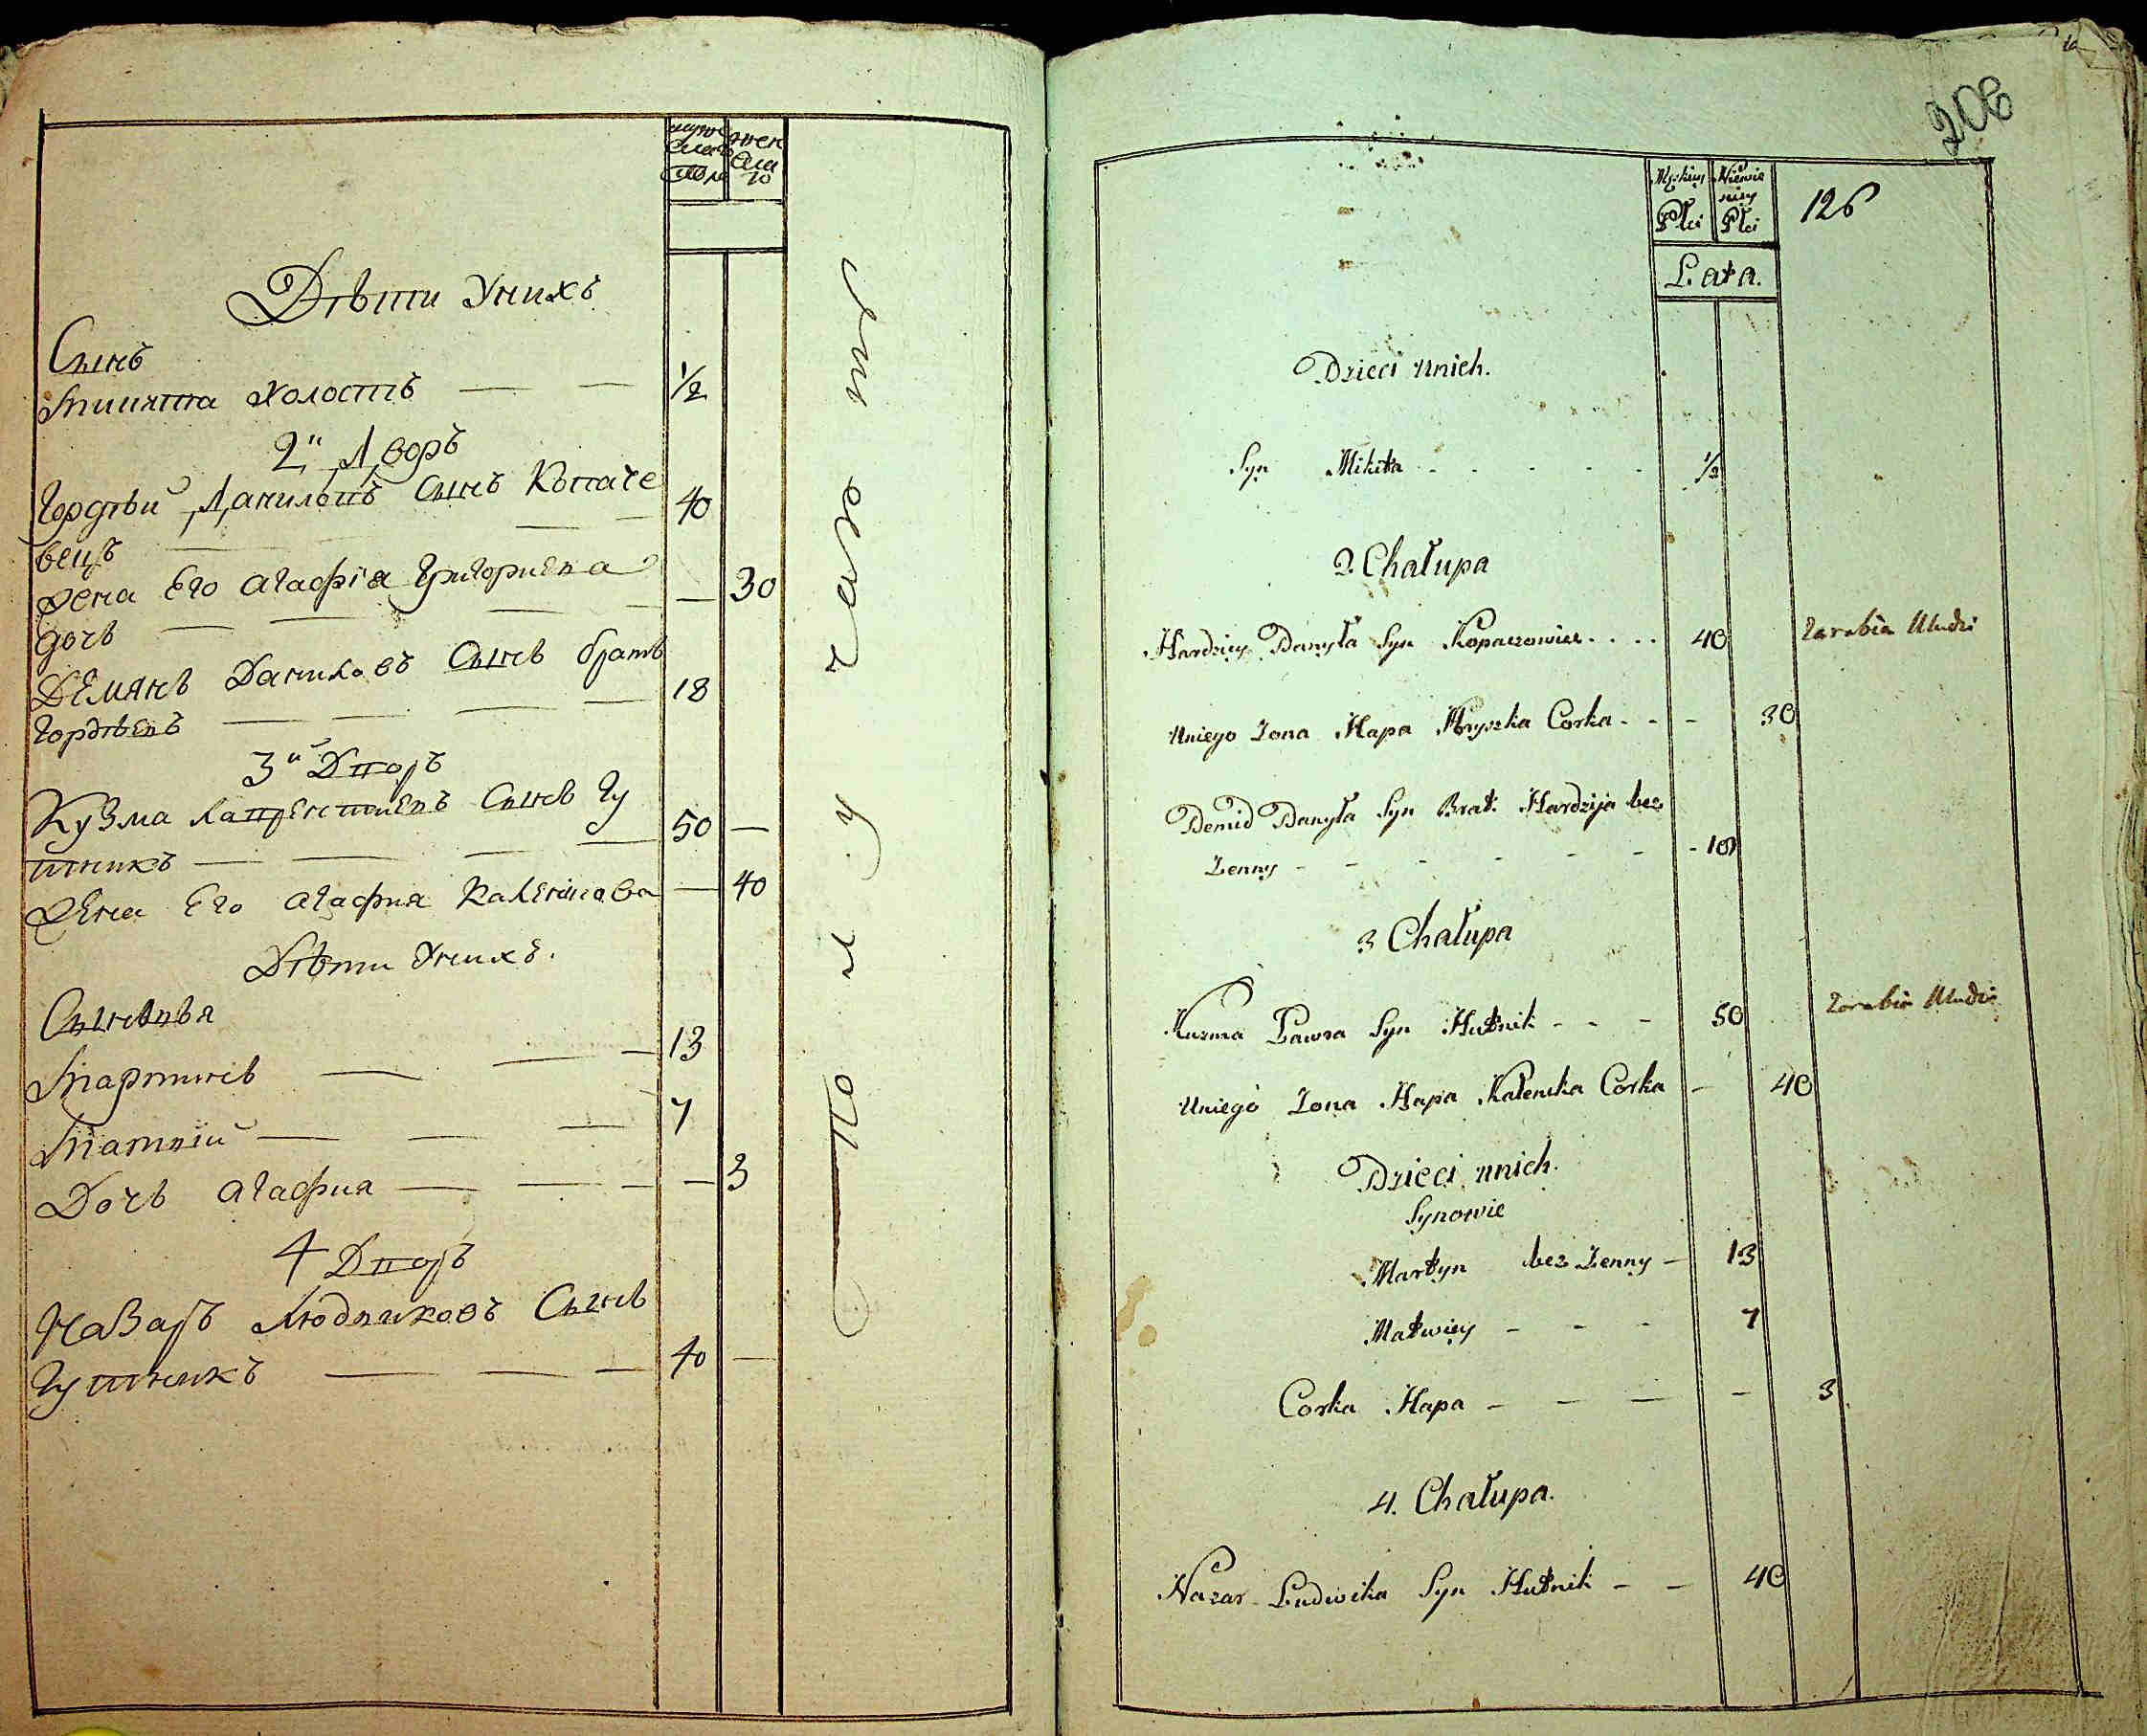 муже
ска
пола
жен
ска
го
Дѣти Унихъ
Сынъ
Микита Холостъ — — 1/2
2й Дворъ
Гордѣй Даниловъ Сынъ Копаче 40
вецъ — — —
Жена Его Агафія Григориева — 30
дочь — — — —
Демянъ Даниловъ Сынъ братъ
Гордѣевъ — — — — 18
3й Дворъ
Кузма Лаврентиевъ Сынъ Гу
тникъ — — — — 50 —
Жена Его Агафия Каленикова — 40
Дѣти Унихъ.
Сыновья
Мартинъ — — — 13
Матвій — — — 7
Дочь Агафия — — — — 3
4 Дворъ
Назаръ Людвиковъ Сынъ
Гутникъ — — — 40 —
208
Męskiey
Płci
Niewie
sciey
Płci
126
Lata.
Dzieci unich.
Syn Mikita - - - - - 1/2
2. Chałupa
Hardziey Danyła Syn Kopaczowiec . . . . 40 Zarabia Uludzi
Uniego Zona Hapa Hryszka Corka - - - 30
Demid Danyła Syn Brat Hardzija bez
Zenny - - - - - - - 18
3 Chałupa
Kuzma Ławra Syn Hutnik - - - 50 Zarabia Uludzi
Uniego Zona Hapa Kalenika Corka - 40
Dzieci unich.
Synowie
Martyn bez Zenny - 13
Matwiey - - - 7
Corka Hapa - - - - 3
4. Chałupa.
Nazar Ludwika Syn Hutnik - - 40